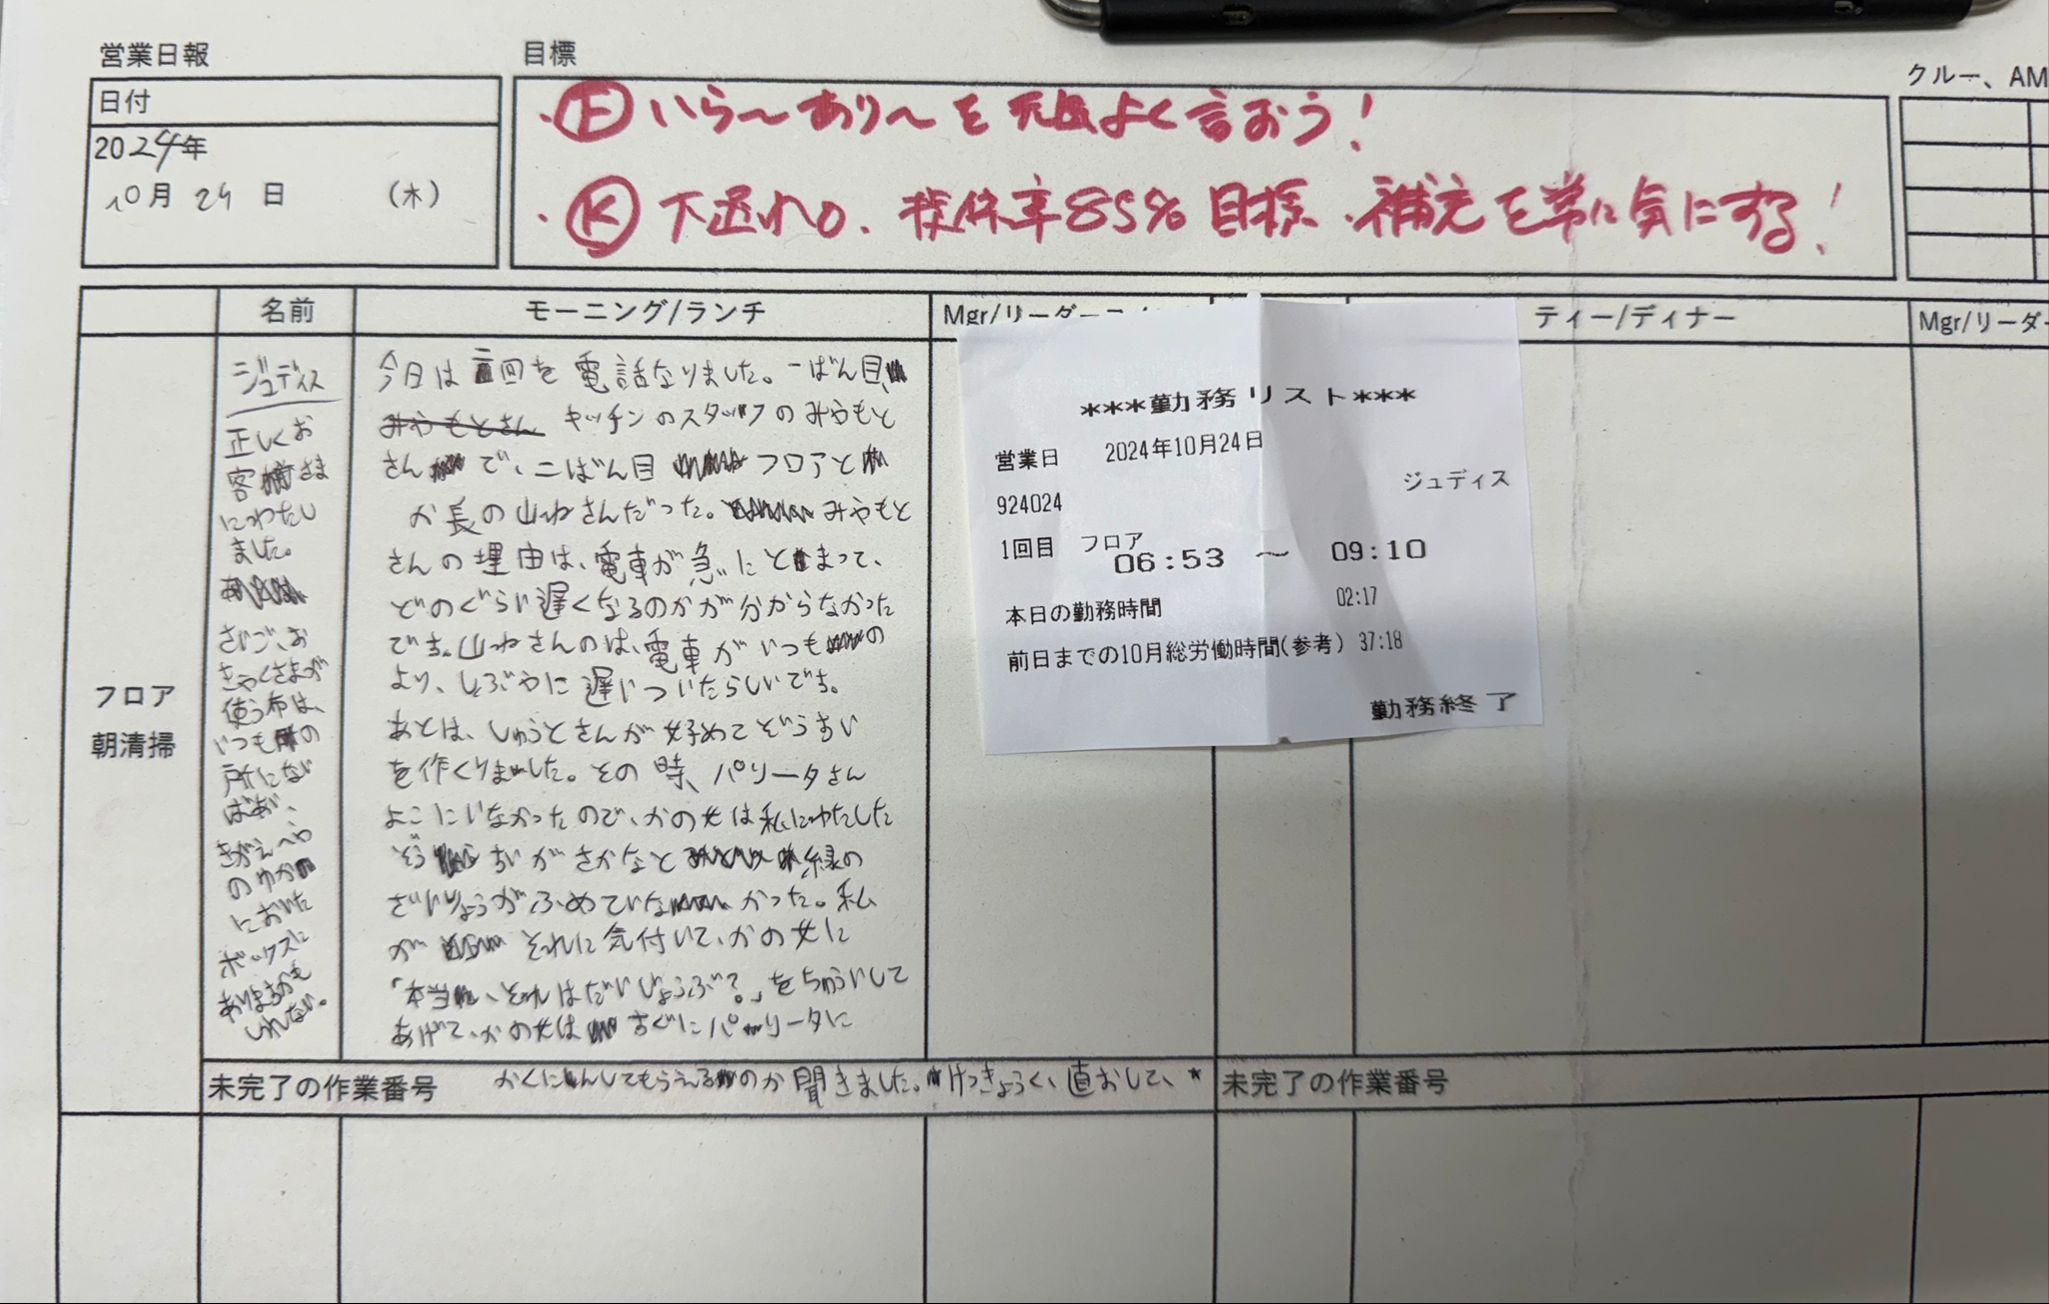 営業日報
日付
2024年
10月 24日 (木)
目標
・Ⓕ いら〜あり〜を元気よく言おう!
・Ⓚ 下返れ0. 提供率85%目標・補充を常に気にする!
クルー、AM
名前
モーニング/ランチ
Mgr/リーダー
ティー/ディナー
Mgr/リーダー
フロア
朝清掃
ジュディス
正しくお
客さま
にわたし
ました。
さいご、お
きゃくさまが
使う布は、
いつもの
所にない
ばあい、
きがえへや
のゆか
においた
ボックスに
ありまるかも
しれない。
今日は二回を電話なりました。一ばん目
キッチンのスタッフのみやもと
さんで、二ばん目フロアと
か長の山ねさんだった。みやもと
さんの理由は、電車が急にとまって、
どのぐらい遅くなるのかが分からなかった
です。山ねさんのは、電車がいつもの
より、しぶやに遅いついたらしいです。
あとは、しゅうとさんが始めてぞうすい
を作くりました。その時、パリータさん
よこにいなかったので、かの女は私にわたした
ぞうすいがさかなと緑の
ざいりょうがふめていなかった。私
がそれに気付いて、かの女に
「本当に、それはだいじょうぶ?」をちゅういして
あげて、かの女はすぐにパリータに
未完了の作業番号
かくにんしてもらえるのか聞きました。けっきょく、直おして、*
未完了の作業番号
***勤務リスト***
営業日 2024年10月24日
924024 ジュディス
1回目 フロア
06:53 〜 09:10
本日の勤務時間 02:17
前日までの10月総労働時間(参考) 37:18
勤務終了